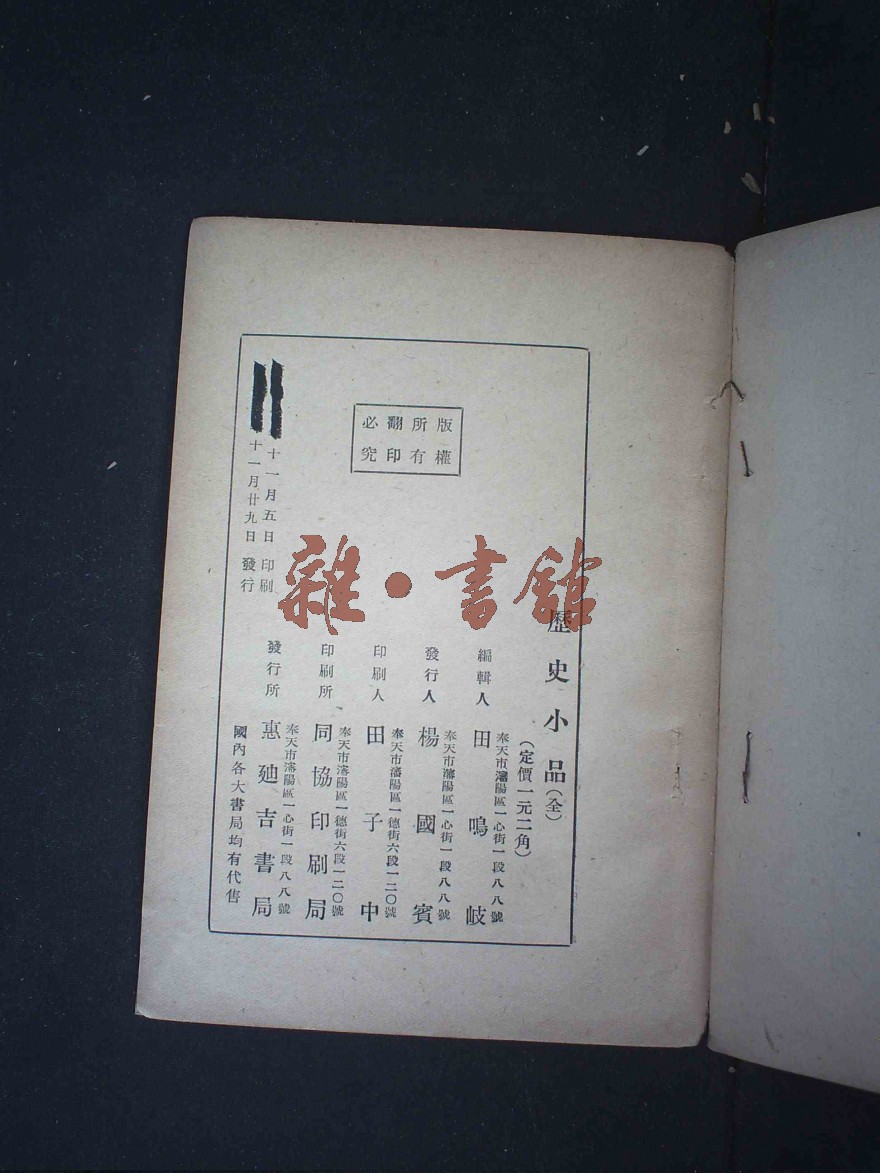 版權所有
翻印必究
歷史小品(全)
(定價一元二角)
奉天市瀋陽區一心街一段八八號
編輯人 田鳴岐
奉天市瀋陽區一心街一段八八號
發行人 楊國賓
奉天市瀋陽區一德街六段一二〇號
印刷人 田子中
奉天市瀋陽區一德街六段一二〇號
印刷所 同協印刷局
奉天市瀋陽區一心街一段八八號
發行所 惠迪吉書局
國內各大書局均有代售
十一月五日 印刷
十一月廿九日 發行
雜·書館